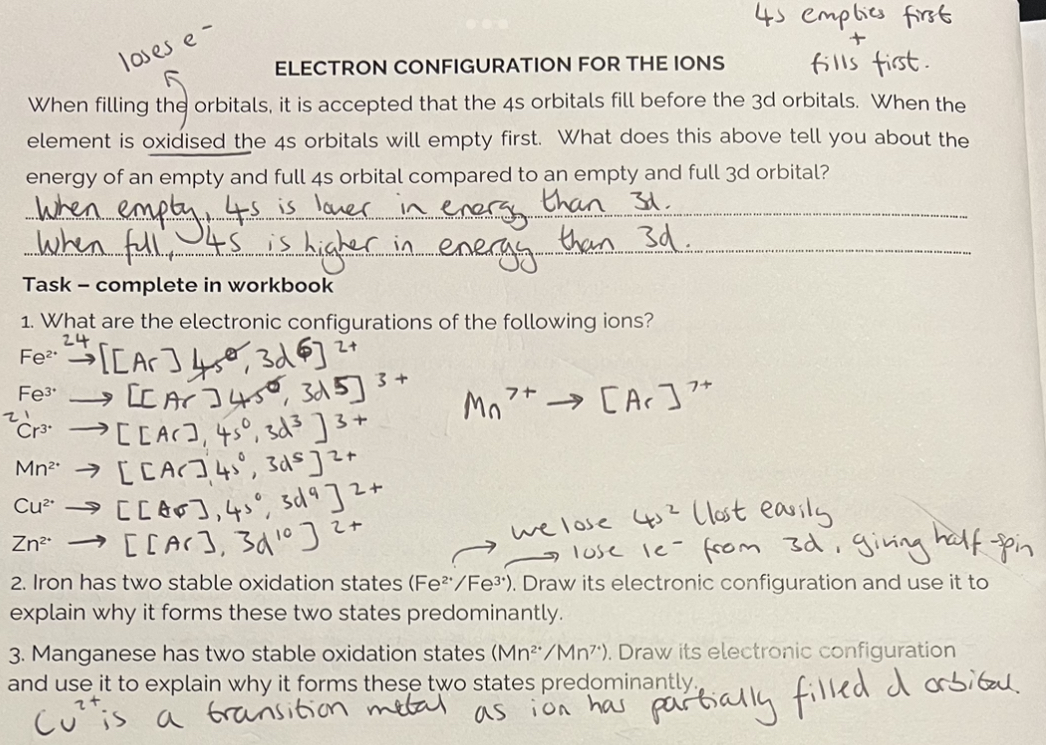 4s empties first
+
fills first.
loses e⁻
ELECTRON CONFIGURATION FOR THE IONS
When filling the orbitals, it is accepted that the 4s orbitals fill before the 3d orbitals. When the
element is oxidised the 4s orbitals will empty first. What does this above tell you about the
energy of an empty and full 4s orbital compared to an empty and full 3d orbital?
When empty, 4s is lower in energy than 3d.
When full, 4s is higher in energy than 3d.
Task – complete in workbook
1. What are the electronic configurations of the following ions?
Fe²⁺ 24 → [[Ar] 4s⁰, 3d6]²⁺
Fe³⁺ → [[Ar] 4s⁰, 3d5]³⁺
Mn⁷⁺ → [Ar]⁷⁺
21 Cr³⁺ → [[Ar], 4s⁰, 3d³]³⁺
Mn²⁺ → [[Ar], 4s⁰, 3d⁵]²⁺
Cu²⁺ → [[Ar], 4s⁰, 3d⁹]²⁺
Zn²⁺ → [[Ar], 3d¹⁰]²⁺
→ we lose 4s² (lost easily
→ lose 1e⁻ from 3d, giving half-spin
2. Iron has two stable oxidation states (Fe²⁺/Fe³⁺). Draw its electronic configuration and use it to
explain why it forms these two states predominantly.
3. Manganese has two stable oxidation states (Mn²⁺/Mn⁷⁺). Draw its electronic configuration
and use it to explain why it forms these two states predominantly.
Cu²⁺ is a transition metal as ion has partially filled d orbital.